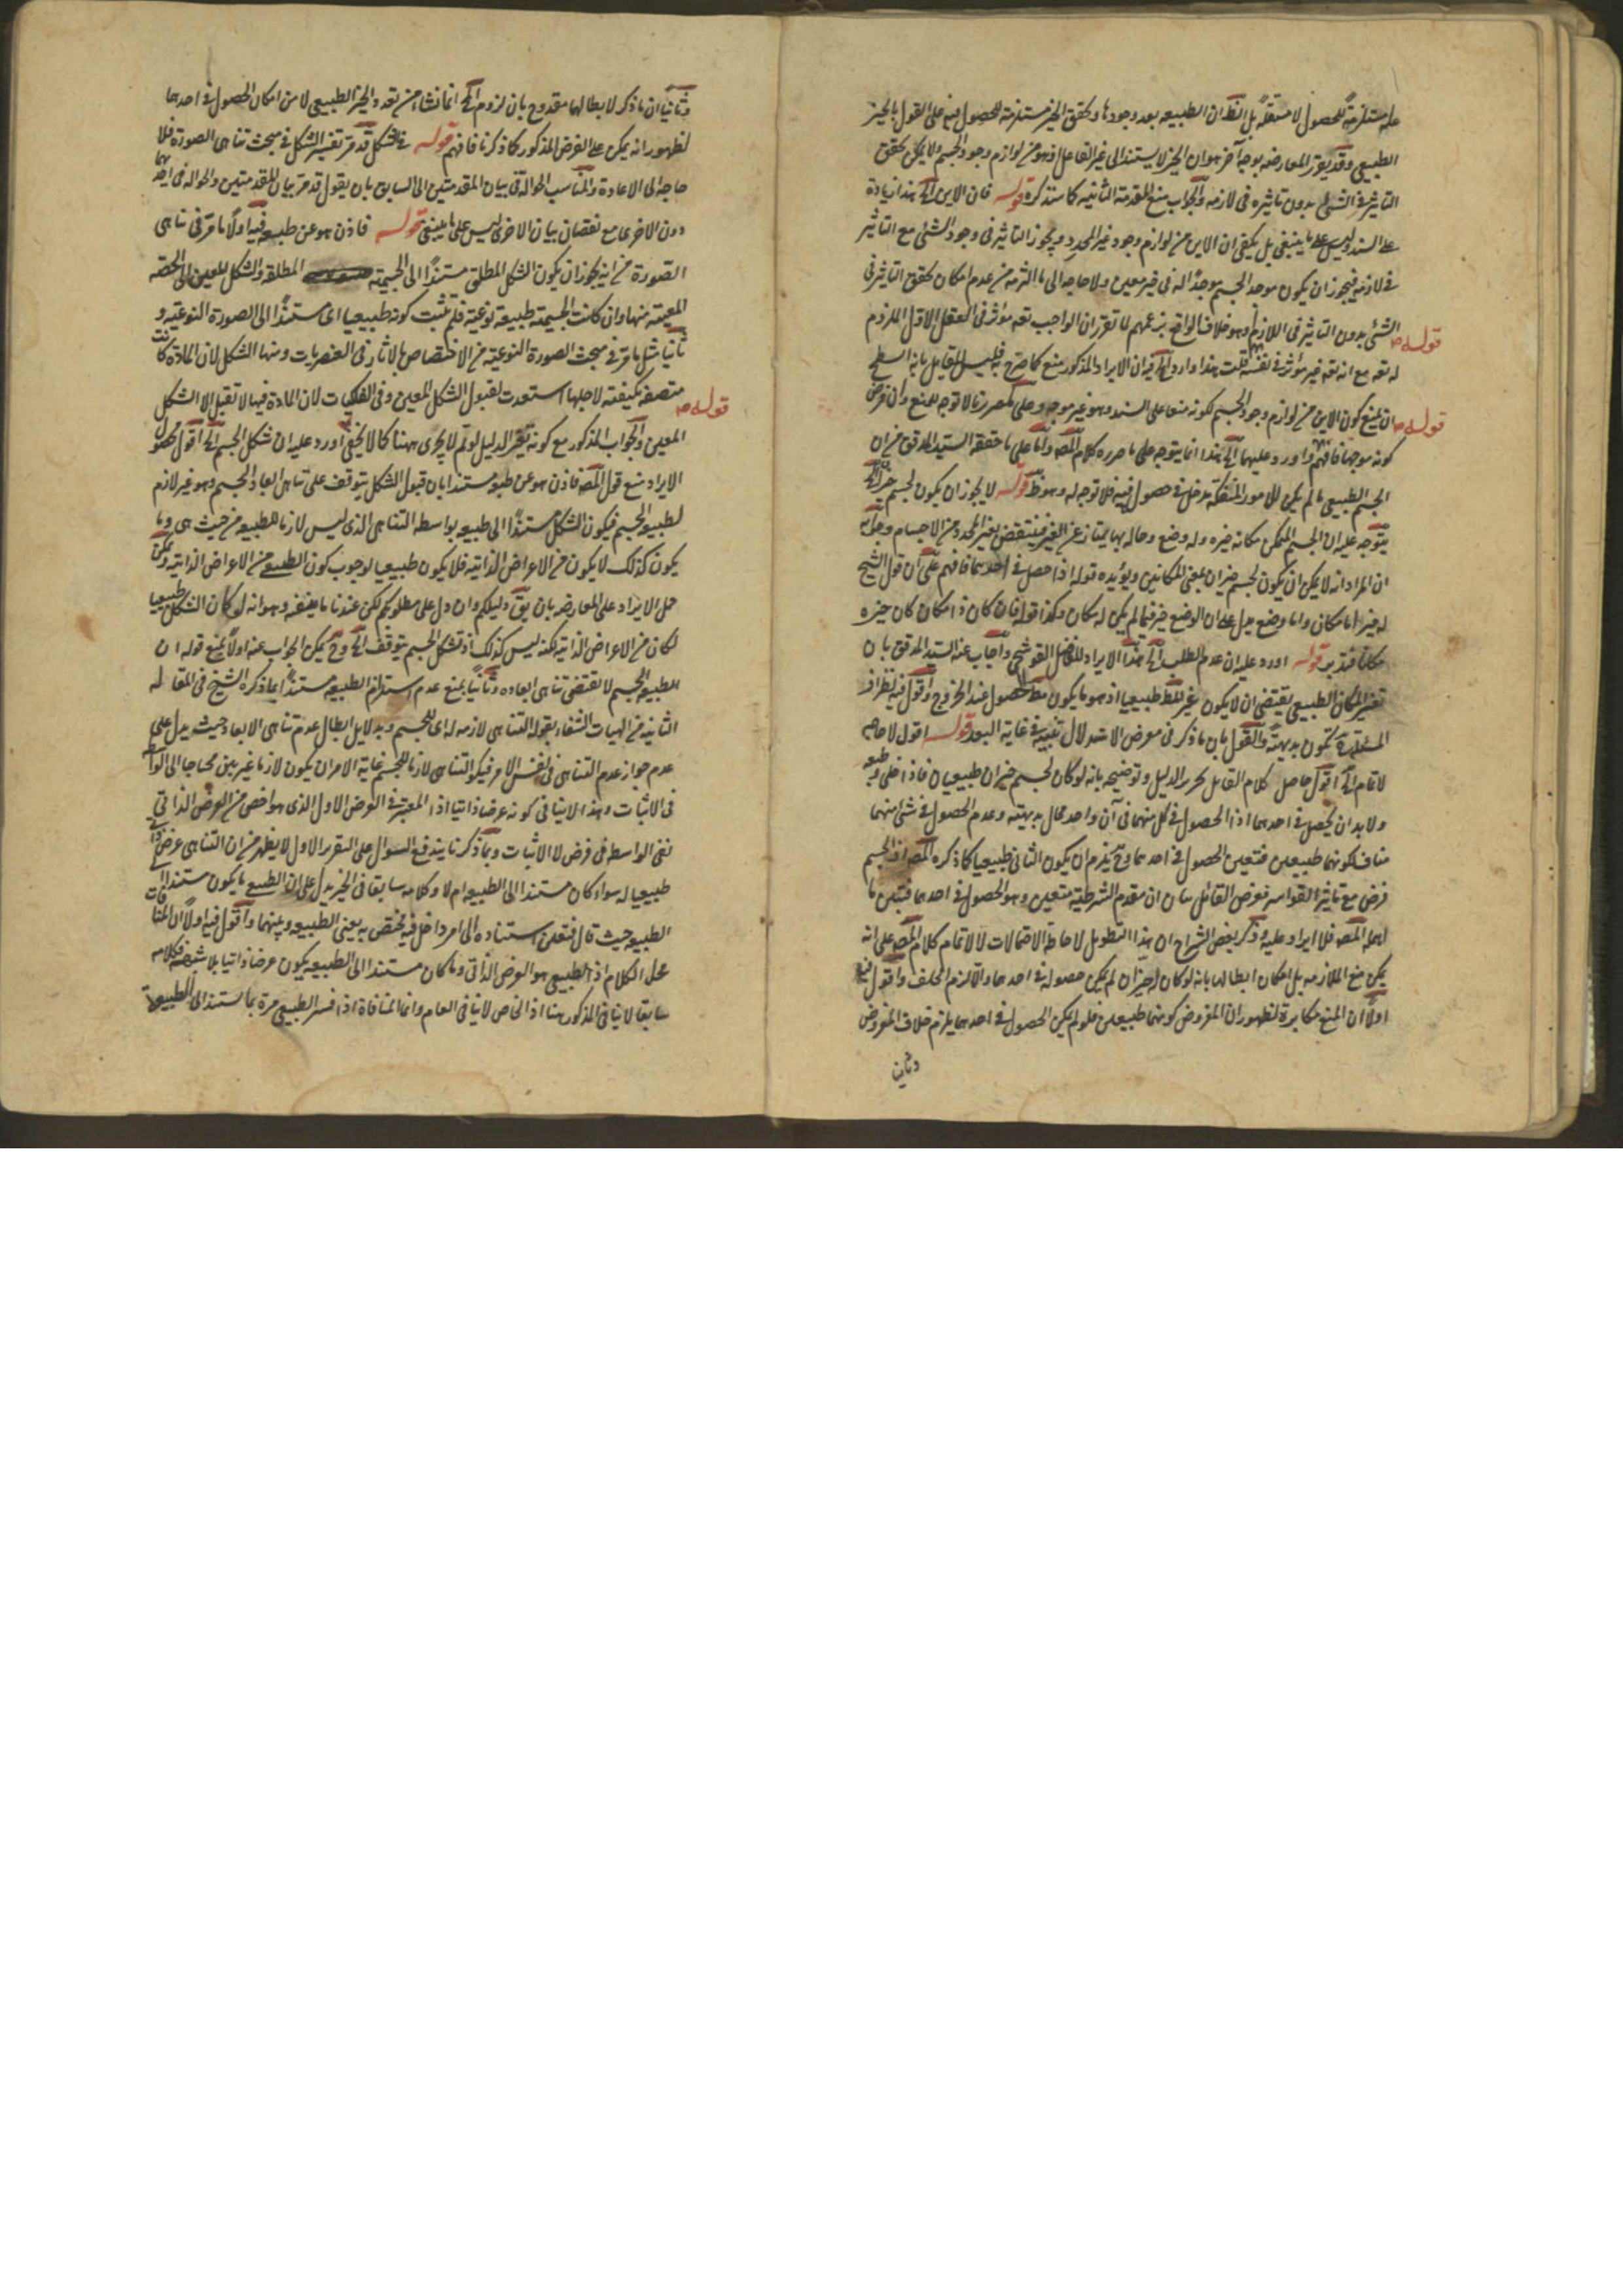 علة مستلزمة للحصول لا مستقلة بل الظ ان الطبيعه بعد وجودها وتحقق الحيز مستلزمة للحصول فيه على القول بالحيز
الطبيعي وقد يقرر المعارضه بوجه آخر هو ان الحيز لا يستند الى غير الفاعل اذ هو من لوازم وجود الجسم ولا يمكن تحقق
التاثير فى الشئ بدون تاثيره فى لازمه والجواب منع المقدمة الثانيه كما ستذكره قوله فان الاين الخ هذا زيادة
على السند وليس على ما ينبغى بل يكفى ان الاين من لوازم وجود غير المحدد ويجوز التاثير فى وجود الشئ مع التاثير
فى لازمه فيجوز ان يكون موجد الجسم موجدا له فى حيز معين ولا حاجه الى ما التزمه من عدم امكان تحقق التاثير فى
قوله الشئ بدون التاثير فى اللازم وهو خلاف الواقع بزعمهم لا تقرر ان الواجب تعه مؤثر فى العقل الاول الملزوم
له تعه مع انه تعه غير مؤثر فى نفسه قلت هذا وارد الخ فيه ان الايراد المذكور منع كما صرح به فليس للقايل بانه السطح
قوله ان يمنع كون الاين من لوازم وجود الجسم لكونه منعا على السند وهو غير موجه وعلى تقدير لا توجه للمنع وان فرض
كونه موجها فافهم واورد عليهما الخ هذا انما يتوجه على ما حرره كلام المصه واما على ما حققه السيد المدقق من ان
الجسم الطبيعى ما لم يكن للامور المنفكة مدخل فى حصول فيه فلا توجه له وهو ظ قوله لا يجوز ان يكون لجسم حيزان الخ
يتوجه عليه ان الجسم الممكن مكانه حيزه وله وضع وحاله بها يمتاز عن الغير فينتقض بغير المحدد من الاجسام وجوابه
ان المراد انه لا يمكن ان يكون لجسم حيزان بمعنى المكانين ويؤيده قوله اذا حصل فى احدهما فافهم على ان قول الشيخ
له حيز اما مكان واما وضع يدل على ان الوضع حيز فيما لم يكن له مكان وكذا قوله فان كان ذا مكان كان حيزه
مكانا فتدبر قوله اورد عليه ان عدم الطلب الخ هذا الايراد للفاضل القوشجى واجاب عنه السيد المدقق بان
تفسير المكان الطبيعى يقتضى ان لا يكون غير المط طبيعيا اذ هو ما يكون مط الحصول عند الخروج واقول فيه نظر اذ
المسئلة تكون بديهته والقول بان ما ذكر فى معرض الاستدلال تنبيه فى غاية البعد قوله اقول لا حاجه
لاتمام الخ اقول حاصل كلام القايل تحرير الدليل وتوضيحه بانه لو كان لجسم حيزان طبيعيان فاذا خلى وطبعه
ولا بد ان يحصل فى احدهما اذا الحصول فى كل منهما فى آن واحد محال بديهته وعدم الحصول فى شئ منهما
مناف لكونهما طبيعيين فتعين الحصول فى احدهما وح يلزم ان يكون الثانى طبيعيا كما ذكره المصه اذ الجسم
فرض مع تاثير القواسر فغرض القائل بيان ان مقدم الشرطية متعين وهو الحصول فى احدهما فتبين ما
اهمله المصه فلا ايراد عليه وذكر بعض الشراح ان هذا التطويل لاحاطة الاحتمالات لا لاتمام كلام المصه على انه
يمكن منع الملازمه بل امكان ابطالها بانه لو كان له حيزان لم يمكن حصوله فى احدهما والا لزم الخلف واقول فيه
اولا ان المنع مكابرة لظهور ان المفروض كونهما طبيعيين فلو لم يكن الحصول فى احدهما يلزم خلاف المفروض
وثانيا
وثانيا ان ما ذكر لابطالها مقدوح بان لزوم الخ انما نشاء من تعدد الحيز الطبيعى لا من امكان الحصول فى احدهما
لظهور انه يمكن على الفرض المذكور كما ذكرنا فافهم قوله فى الشكل قد مر تفسير الشكل فى مبحث تناهى الصورة فلا
حاجه الى الاعادة والمناسب الحوالة فى بيان المقدمتين الى السابق بان يقول قد مر بيان المقدمتين والحواله فى احديهما
دون الاخرى مع نقصان بيان الاخرى ليس على ما ينبغى قوله فاذن هو عن طبيعه فيه اولا ما مر فى تناهى
الصورة من انه يجوز ان يكون الشكل المطلق مستندا الى الجسميه المطلقه والشكل المعين الى الحصه
المعينه منها وان كانت الجسميته طبيعة نوعيته فلم تثبت كونه طبيعيا اى مستندا الى الصورة النوعيته و
ثانيا مثل ما مر فى مبحث الصورة النوعيته من الاختصاص بالاثار فى العنصريات ومنها الشكل لان المادة كانت
قوله متصفة بكيفيته لاجلها استعدت لقبول الشكل المعين وفى الفلكيات لان المادة فيها لا تقبل الا الشكل
المعين والجواب المذكور مع كونه تغير الدليل لو تم لا يجرى ههنا كما لا يخفى اورد عليه ان شكل الجسم الخ اقول محصول
الايراد منع قول المصه فاذن هو عن طبعه مستندا بان قبول الشكل يتوقف على تناهى ابعاد الجسم وهو غير لازم
لطبيعه الجسم فيكون الشكل مستندا الى طبيعه بواسطه التناهى الذى ليس لازما للطبيعه من حيث هى وما
يكون كذلك لا يكون من الاعراض الذاتيه فلا يكون طبيعيا لوجوب كون الطبيعى من الاعراض الذاتيه ويمكن
حمل الايراد على المعارضه بان يق دليلكم وان دل على مطلوبكم لكن عندنا ما ينفيه وهو انه لو كان الشكل طبيعيا
لكان من الاعراض الذاتيه لكنه ليس كذلك اذ تشكل الجسم يتوقف الخ وح يمكن الجواب عنه اولا بمنع قوله ان
الطبيعه الجسم لا تقتضى تناهى ابعاده وثانيا بمنع عدم استلزام الطبيعه مستندا بما ذكره الشيخ فى المقاله
الثانيه من الهيات الشفاء بقوله التناهى لازمه له اى للجسم وبدلايل ابطال عدم تناهى الابعاد حيث يدل على
عدم جواز عدم التناهى فى نفس الامر فيكون التناهى لازما للجسم غاية الامر ان يكون لازما غير بين محتاجا الى الواسطه
فى الاثبات وهذا لا ينافى كونه عرضا ذاتيا اذ المعتبر فى العرض الاول الذى هو اخص من العرض الذاتى
نفى الواسطه فى عرض لا الاثبات وبما ذكرنا يندفع السوال على التقرير الاول لا يظهر من ان التناهى عرض ذاتى
طبيعيا له سواء كان مستندا الى الطبيعه ام لا وكلامه سابقا فى الحيز يدل على ان الطبيعى ما يكون مستندا الى
الطبيعه حيث قال فتعين استناده الى امر داخل فيه مختص به يعنى الطبيعه وبينهما واقول فيه اولا ان المنافات
محل الكلام اذ الطبيعى هو العرض الذاتى وما كان مستندا الى الطبيعه يكون عرضا ذاتيا بلا شبهه فكلامه
سابقا لا ينافى المذكور هنا اذ الخاص لا ينافى العام وانما المنافاة اذا فسر الطبيعى مرة بما استند الى الطبيعة